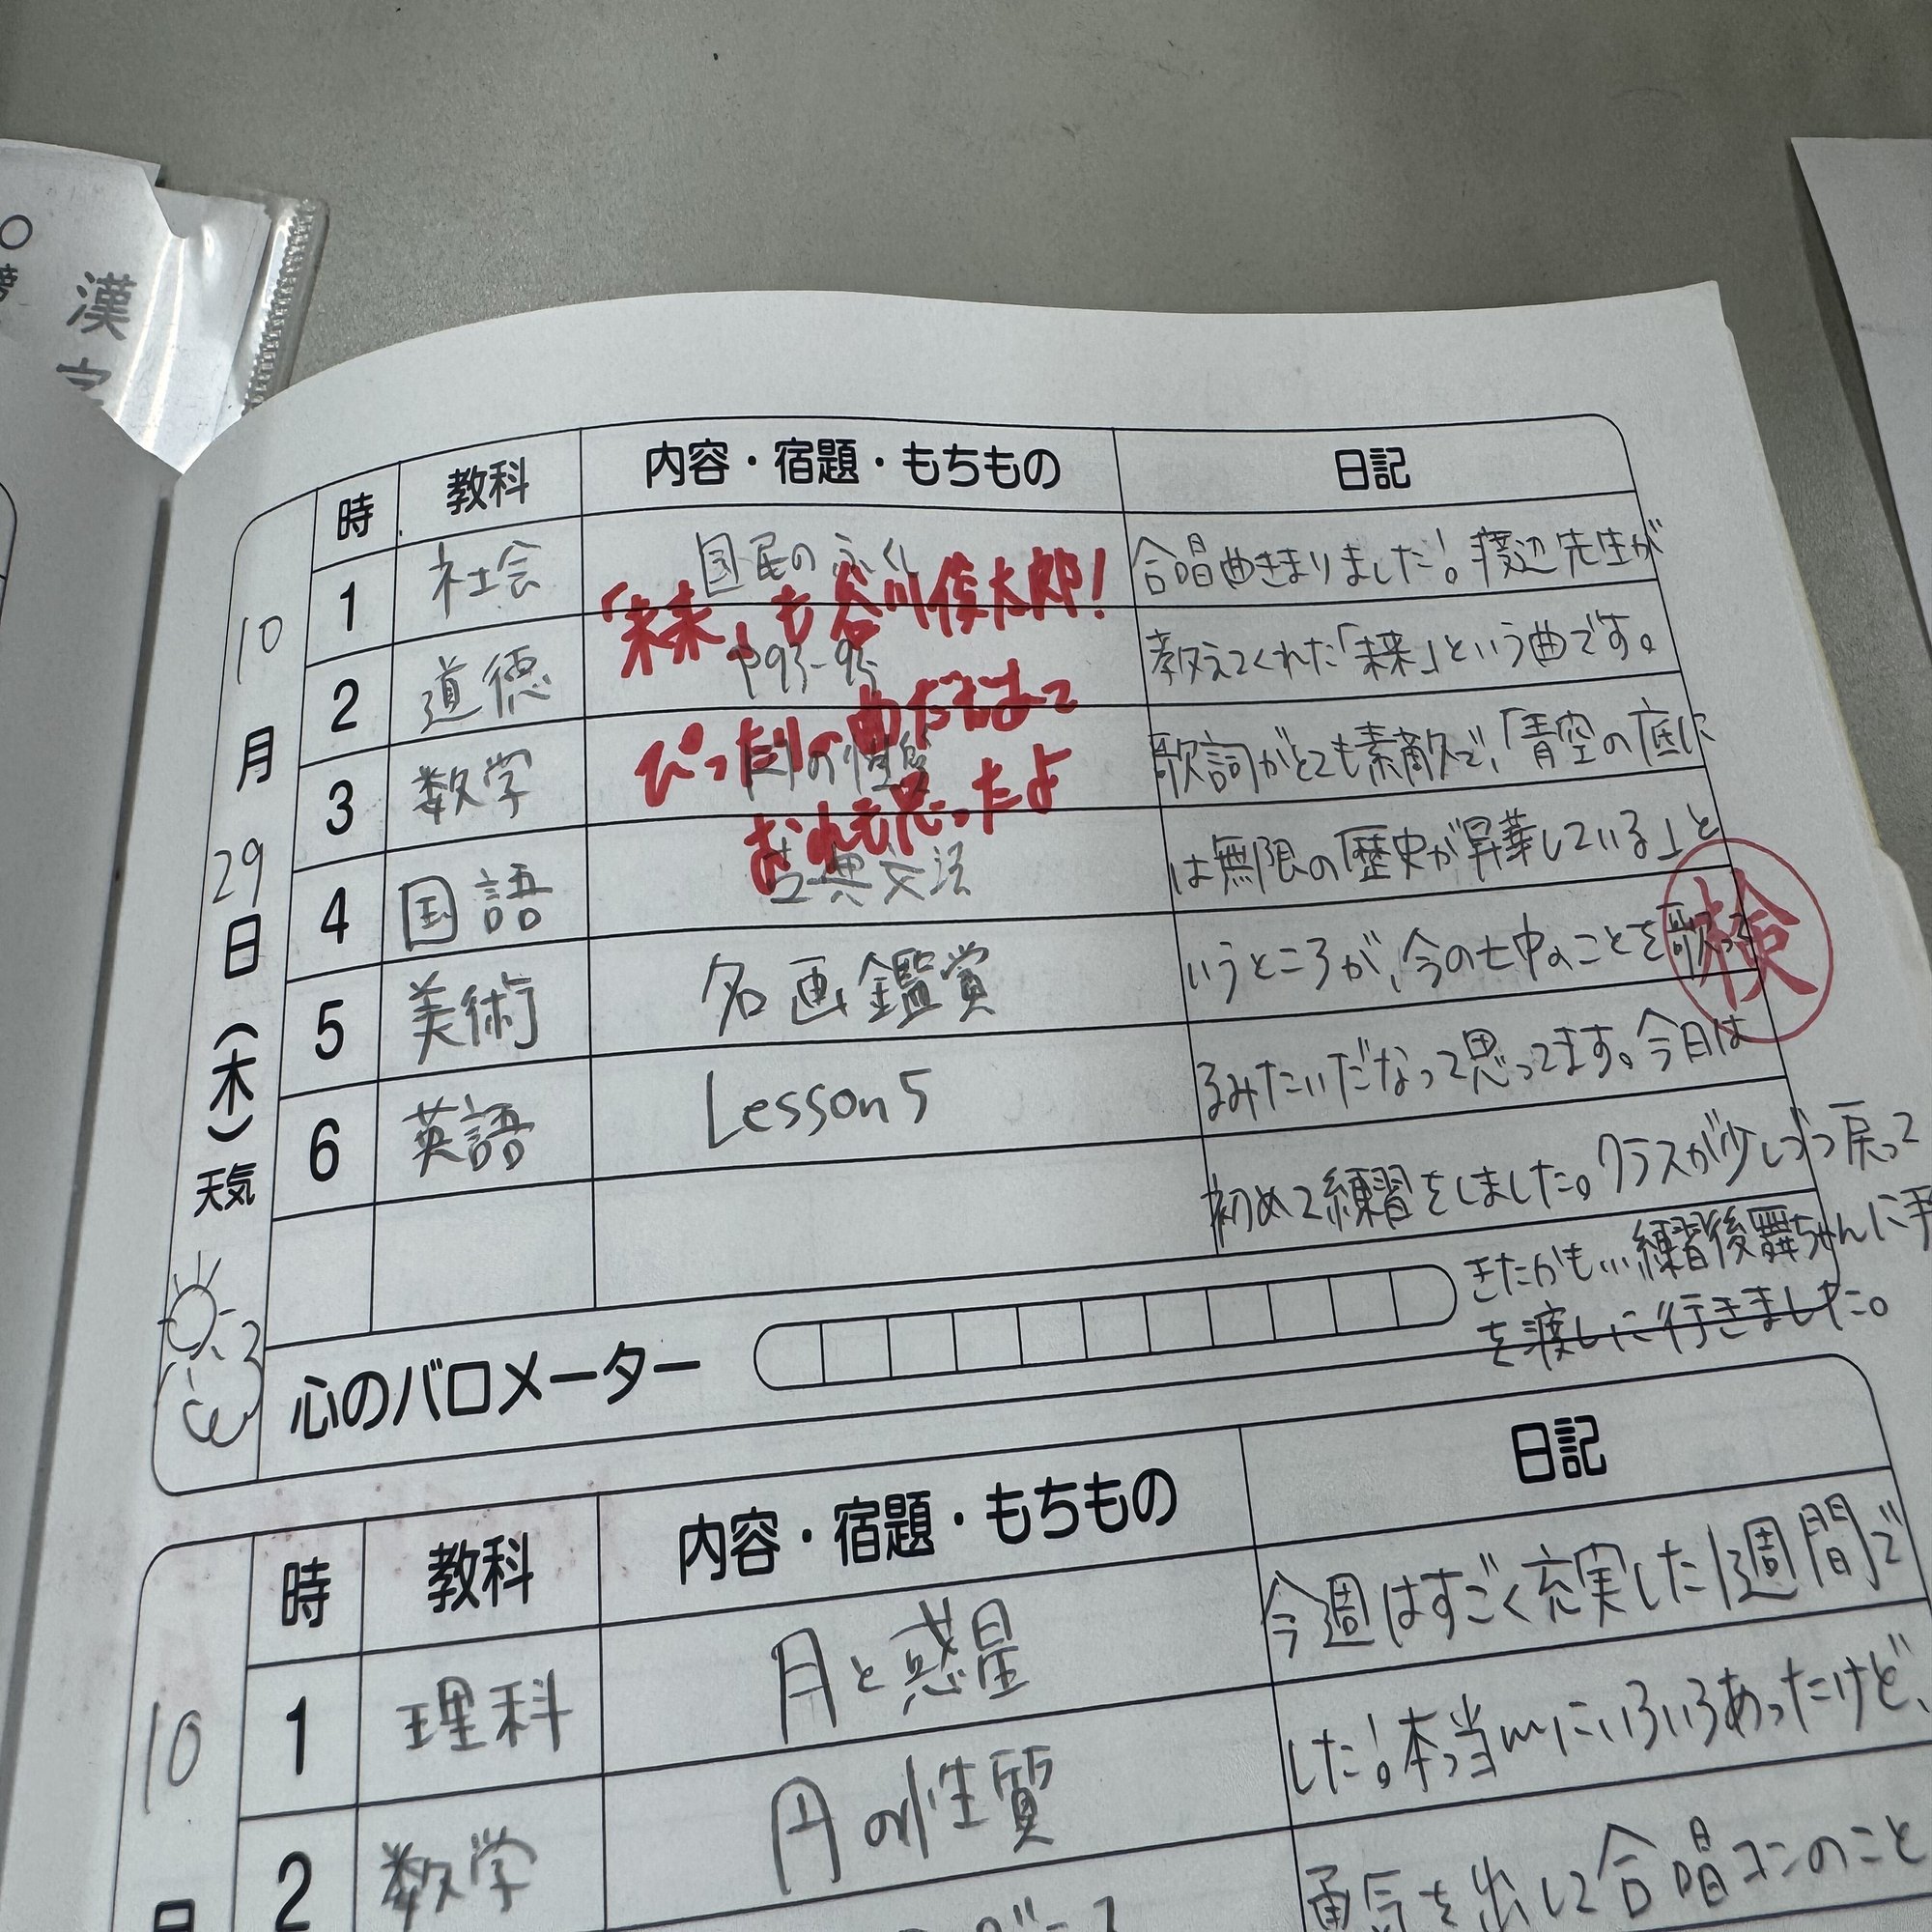 漢
時 教科 内容・宿題・もちもの 日記
10月29日(木)天気
1 社会 国民の
2 道徳 P93-95
3 数学 円の性質
4 国語 古典文法
5 美術 名画鑑賞
6 英語 Lesson5
「未来」も谷川俊太郎!
ぴったりの曲だなあって
おれも思ったよ
合唱曲きまりました!渡辺先生が
教えてくれた「未来」という曲です。
歌詞がとても素敵で、「青空の底に
は無限の歴史が昇華している」と
いうところが、今の七中のことを歌って
るみたいだなって思ってます。今日は
初めて練習をしました。クラスが少しづつ戻って
きたかも…練習後舞ちゃんに手
を渡しに行きました。
検
心のバロメーター
時 教科 内容・宿題・もちもの 日記
10
1 理科 月と惑星
2 数学 円の性質
今週はすごく充実した1週間で
した!本っ当にいろいろあったけど、
勇気を出して合唱コンのこと